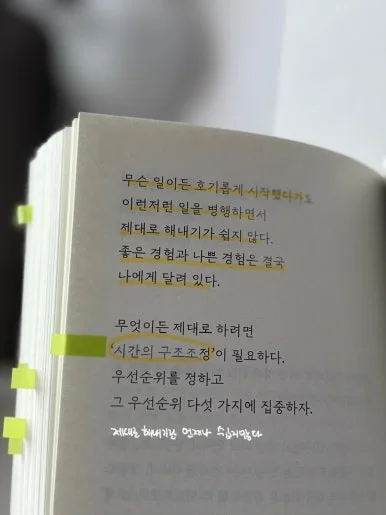 무슨 일이든 호기롭게 시작했다가도
이런저런 일을 병행하면서
제대로 해내기가 쉽지 않다.
좋은 경험과 나쁜 경험은 결국
나에게 달려 있다.
무엇이든 제대로 하려면
'시간의 구조조정'이 필요하다.
우선순위를 정하고
그 우선순위 다섯 가지에 집중하자.
제대로 해내기란 언제나 쉽지않다